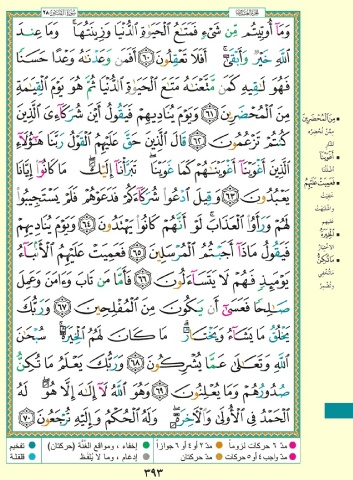 سُورَةُ القَصَصِ ٢٨
وَمَا أُوتِيتُم مِّن شَيْءٍ فَمَتَـٰعُ الْحَيَوٰةِ الدُّنْيَا وَزِينَتُهَا ۚ وَمَا عِندَ
اللَّهِ خَيْرٌ وَأَبْقَىٰٓ ۚ أَفَلَا تَعْقِلُونَ ٦٠ أَفَمَن وَعَدْنَـٰهُ وَعْدًا حَسَنًا
فَهُوَ لَـٰقِيهِ كَمَن مَّتَّعْنَـٰهُ مَتَـٰعَ الْحَيَوٰةِ الدُّنْيَا ثُمَّ هُوَ يَوْمَ الْقِيَـٰمَةِ
مِنَ الْمُحْضَرِينَ ٦١ وَيَوْمَ يُنَادِيهِمْ فَيَقُولُ أَيْنَ شُرَكَآءِيَ الَّذِينَ
كُنتُمْ تَزْعُمُونَ ٦٢ قَالَ الَّذِينَ حَقَّ عَلَيْهِمُ الْقَوْلُ رَبَّنَا هَـٰٓؤُلَآءِ
الَّذِينَ أَغْوَيْنَآ أَغْوَيْنَـٰهُمْ كَمَا غَوَيْنَا ۖ تَبَرَّأْنَآ إِلَيْكَ ۖ مَا كَانُوٓا إِيَّانَا
يَعْبُدُونَ ٦٣ وَقِيلَ ادْعُوا شُرَكَآءَكُمْ فَدَعَوْهُمْ فَلَمْ يَسْتَجِيبُوا
لَهُمْ وَرَأَوُا الْعَذَابَ ۚ لَوْ أَنَّهُمْ كَانُوا يَهْتَدُونَ ٦٤ وَيَوْمَ يُنَادِيهِمْ
فَيَقُولُ مَاذَآ أَجَبْتُمُ الْمُرْسَلِينَ ٦٥ فَعَمِيَتْ عَلَيْهِمُ الْأَنۢبَآءُ
يَوْمَئِذٍ فَهُمْ لَا يَتَسَآءَلُونَ ٦٦ فَأَمَّا مَن تَابَ وَءَامَنَ وَعَمِلَ
صَـٰلِحًا فَعَسَىٰٓ أَن يَكُونَ مِنَ الْمُفْلِحِينَ ٦٧ وَرَبُّكَ
يَخْلُقُ مَا يَشَآءُ وَيَخْتَارُ ۗ مَا كَانَ لَهُمُ الْخِيَرَةُ ۚ سُبْحَـٰنَ
اللَّهِ وَتَعَـٰلَىٰ عَمَّا يُشْرِكُونَ ٦٨ وَرَبُّكَ يَعْلَمُ مَا تُكِنُّ
صُدُورُهُمْ وَمَا يُعْلِنُونَ ٦٩ وَهُوَ اللَّهُ لَآ إِلَـٰهَ إِلَّا هُوَ ۖ لَهُ
الْحَمْدُ فِي الْأُولَىٰ وَالْـَٔاخِرَةِ ۖ وَلَهُ الْحُكْمُ وَإِلَيْهِ تُرْجَعُونَ ٧٠
مِنَ الْمُحْضَرِينَ
مِمَّن نُحْضِرُه
للنار
أَغْوَيْنَا
أضللنا
فَعَمِيَتْ عَلَيْهِمُ
خفيت
واشتبهت
عليهم
الْخِيَرَةُ
الاختيار
مَا تُكِنُّ
ما تُخفي
وتُضمر
مدّ ٦ حركات لزوماً مدّ ٢ أو ٤ أو ٦ جوازاً إخفاء، ومواقع الغُنَّة (حركتان) تفخيم
مدّ واجب ٤ أو ٥ حركات مدّ حركتان إدغام، وما لا يُلفَظ قلقلة
٣٩٣